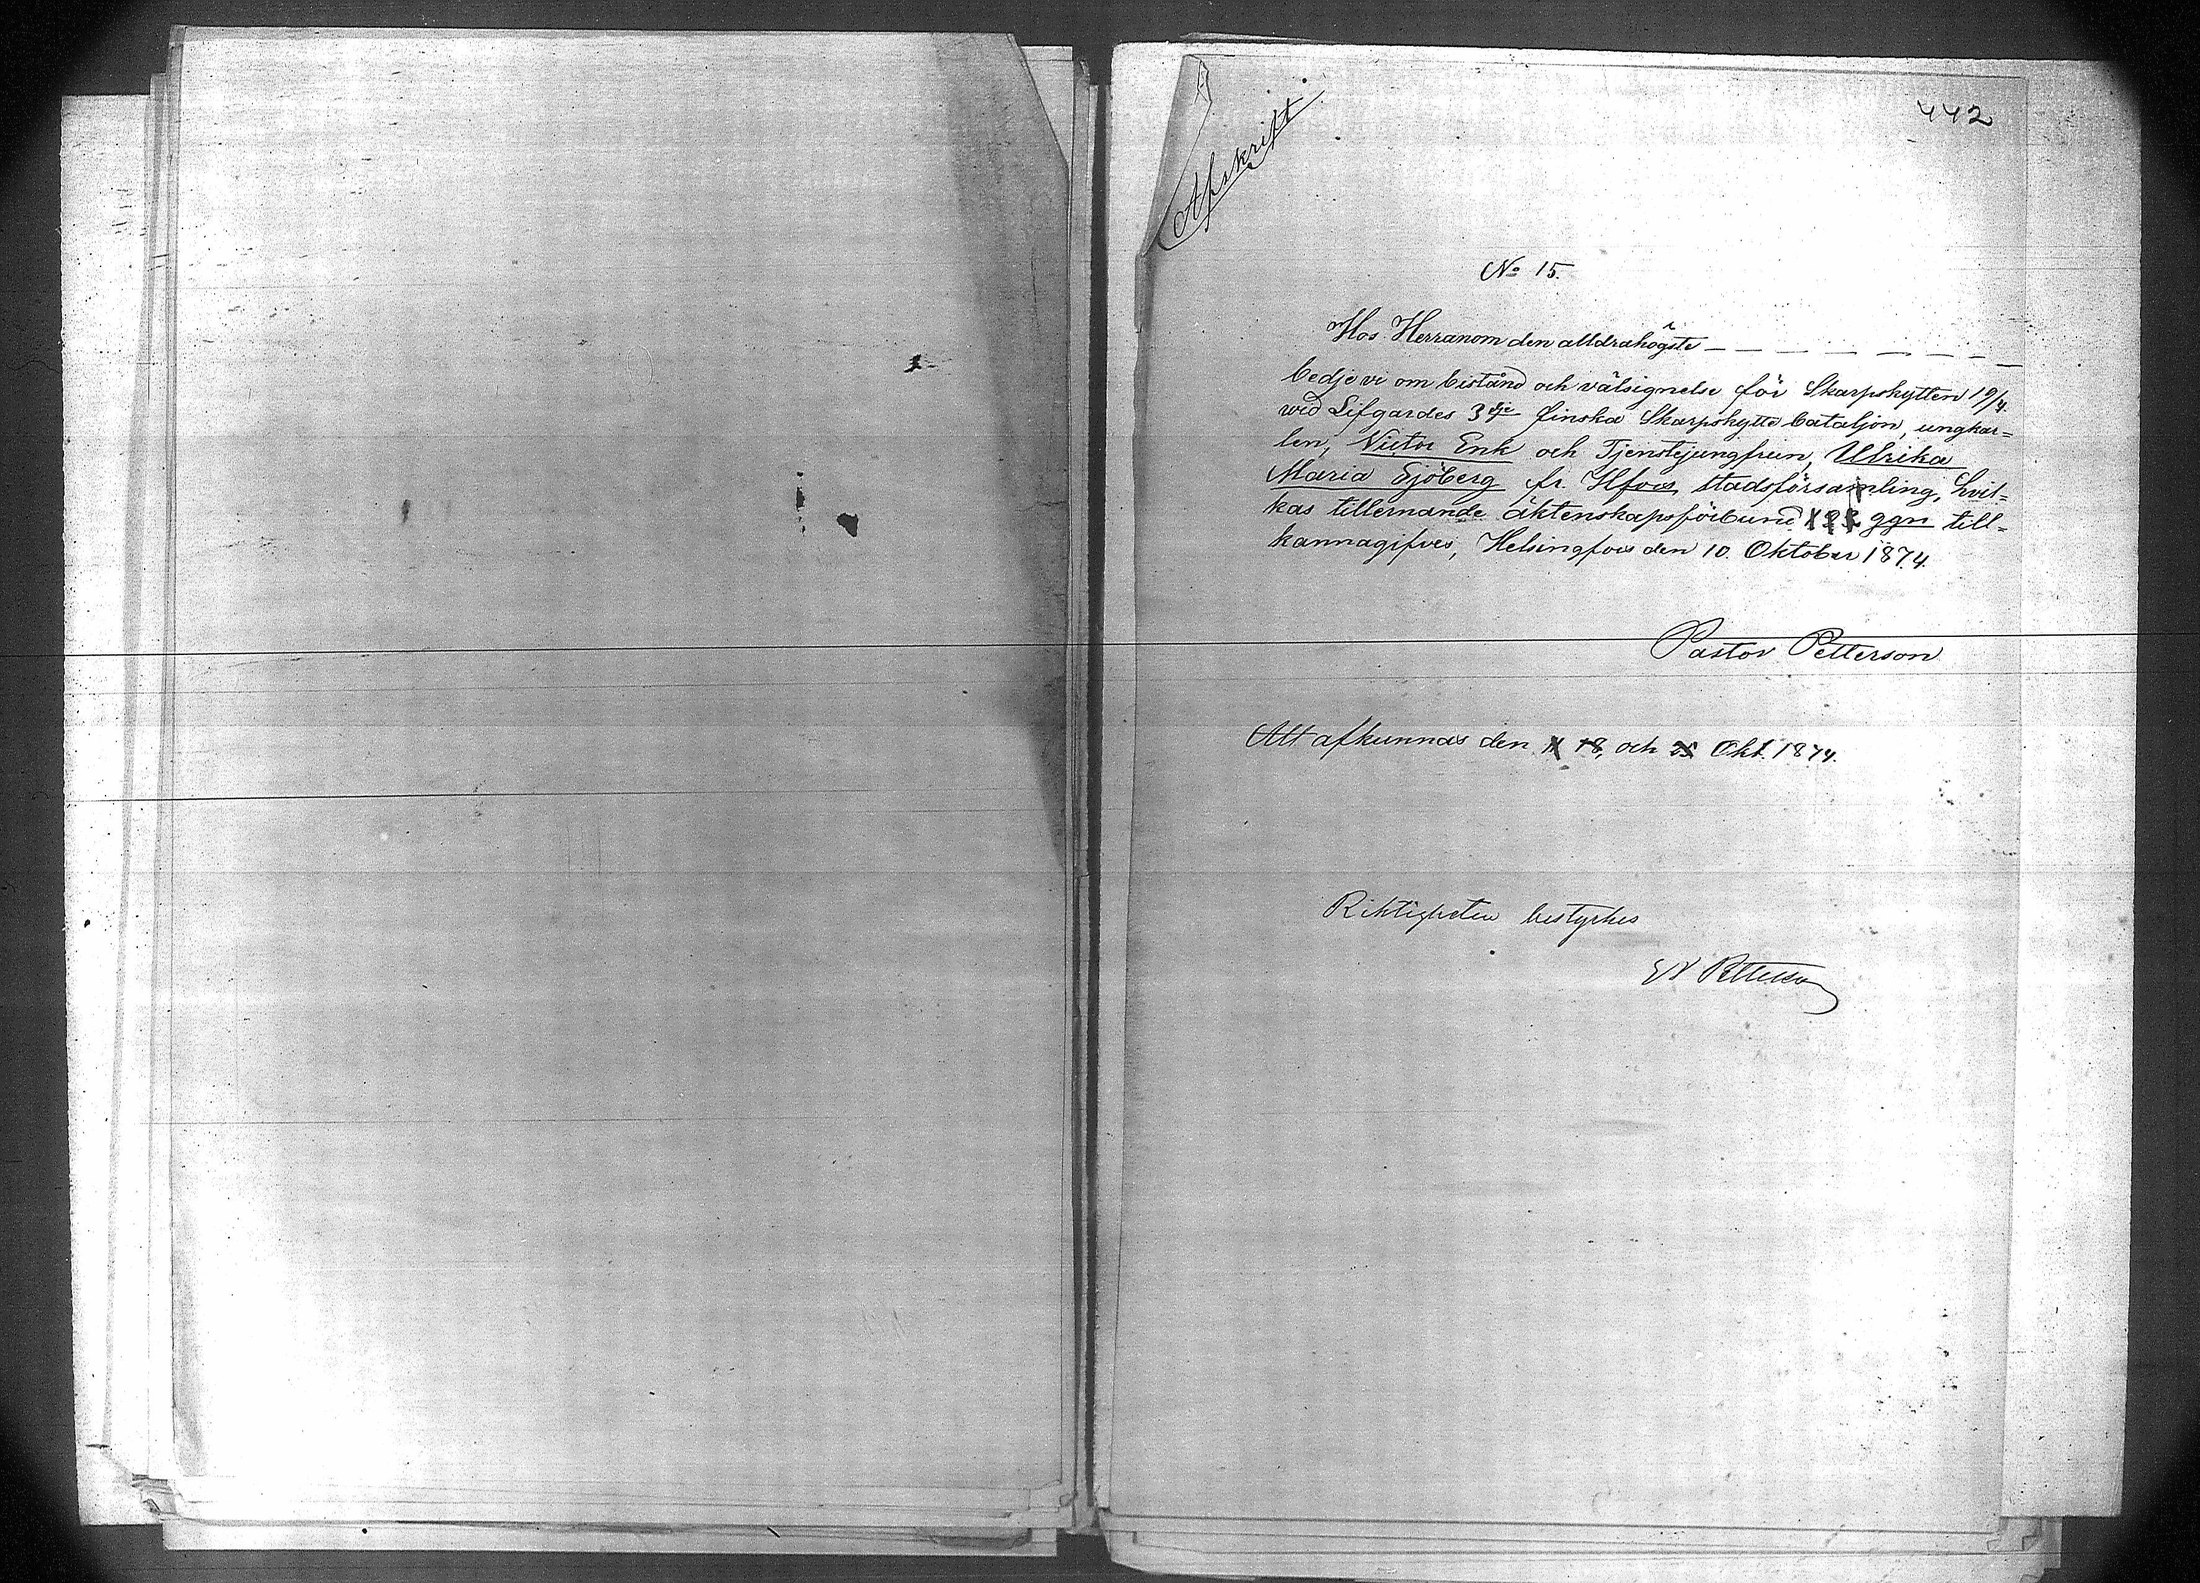 442
Afskrift
No 15.
Hos Herranom den alldrahögste — — — — — — — —
bedje vi om bistånd och välsignelse för Skarpskytten 19/4.
wid Lifgardes 3dje Finska Skarpskytte bataljon, ungkar=
len, Victor Enk och Tjenstejungfrun, Ulrika
Maria Sjöberg fr. Hfors stadsförsamling, hvil=
kas tillernande äktenskapsförbund 1 2 3 ggn till=
kännagifves, Helsingfors den 10. Oktober 1874.
Pastor Petterson
Att afkunnas den 11 18, och 25 Okt. 1874.
Riktigheten bestyrkes
Petterson